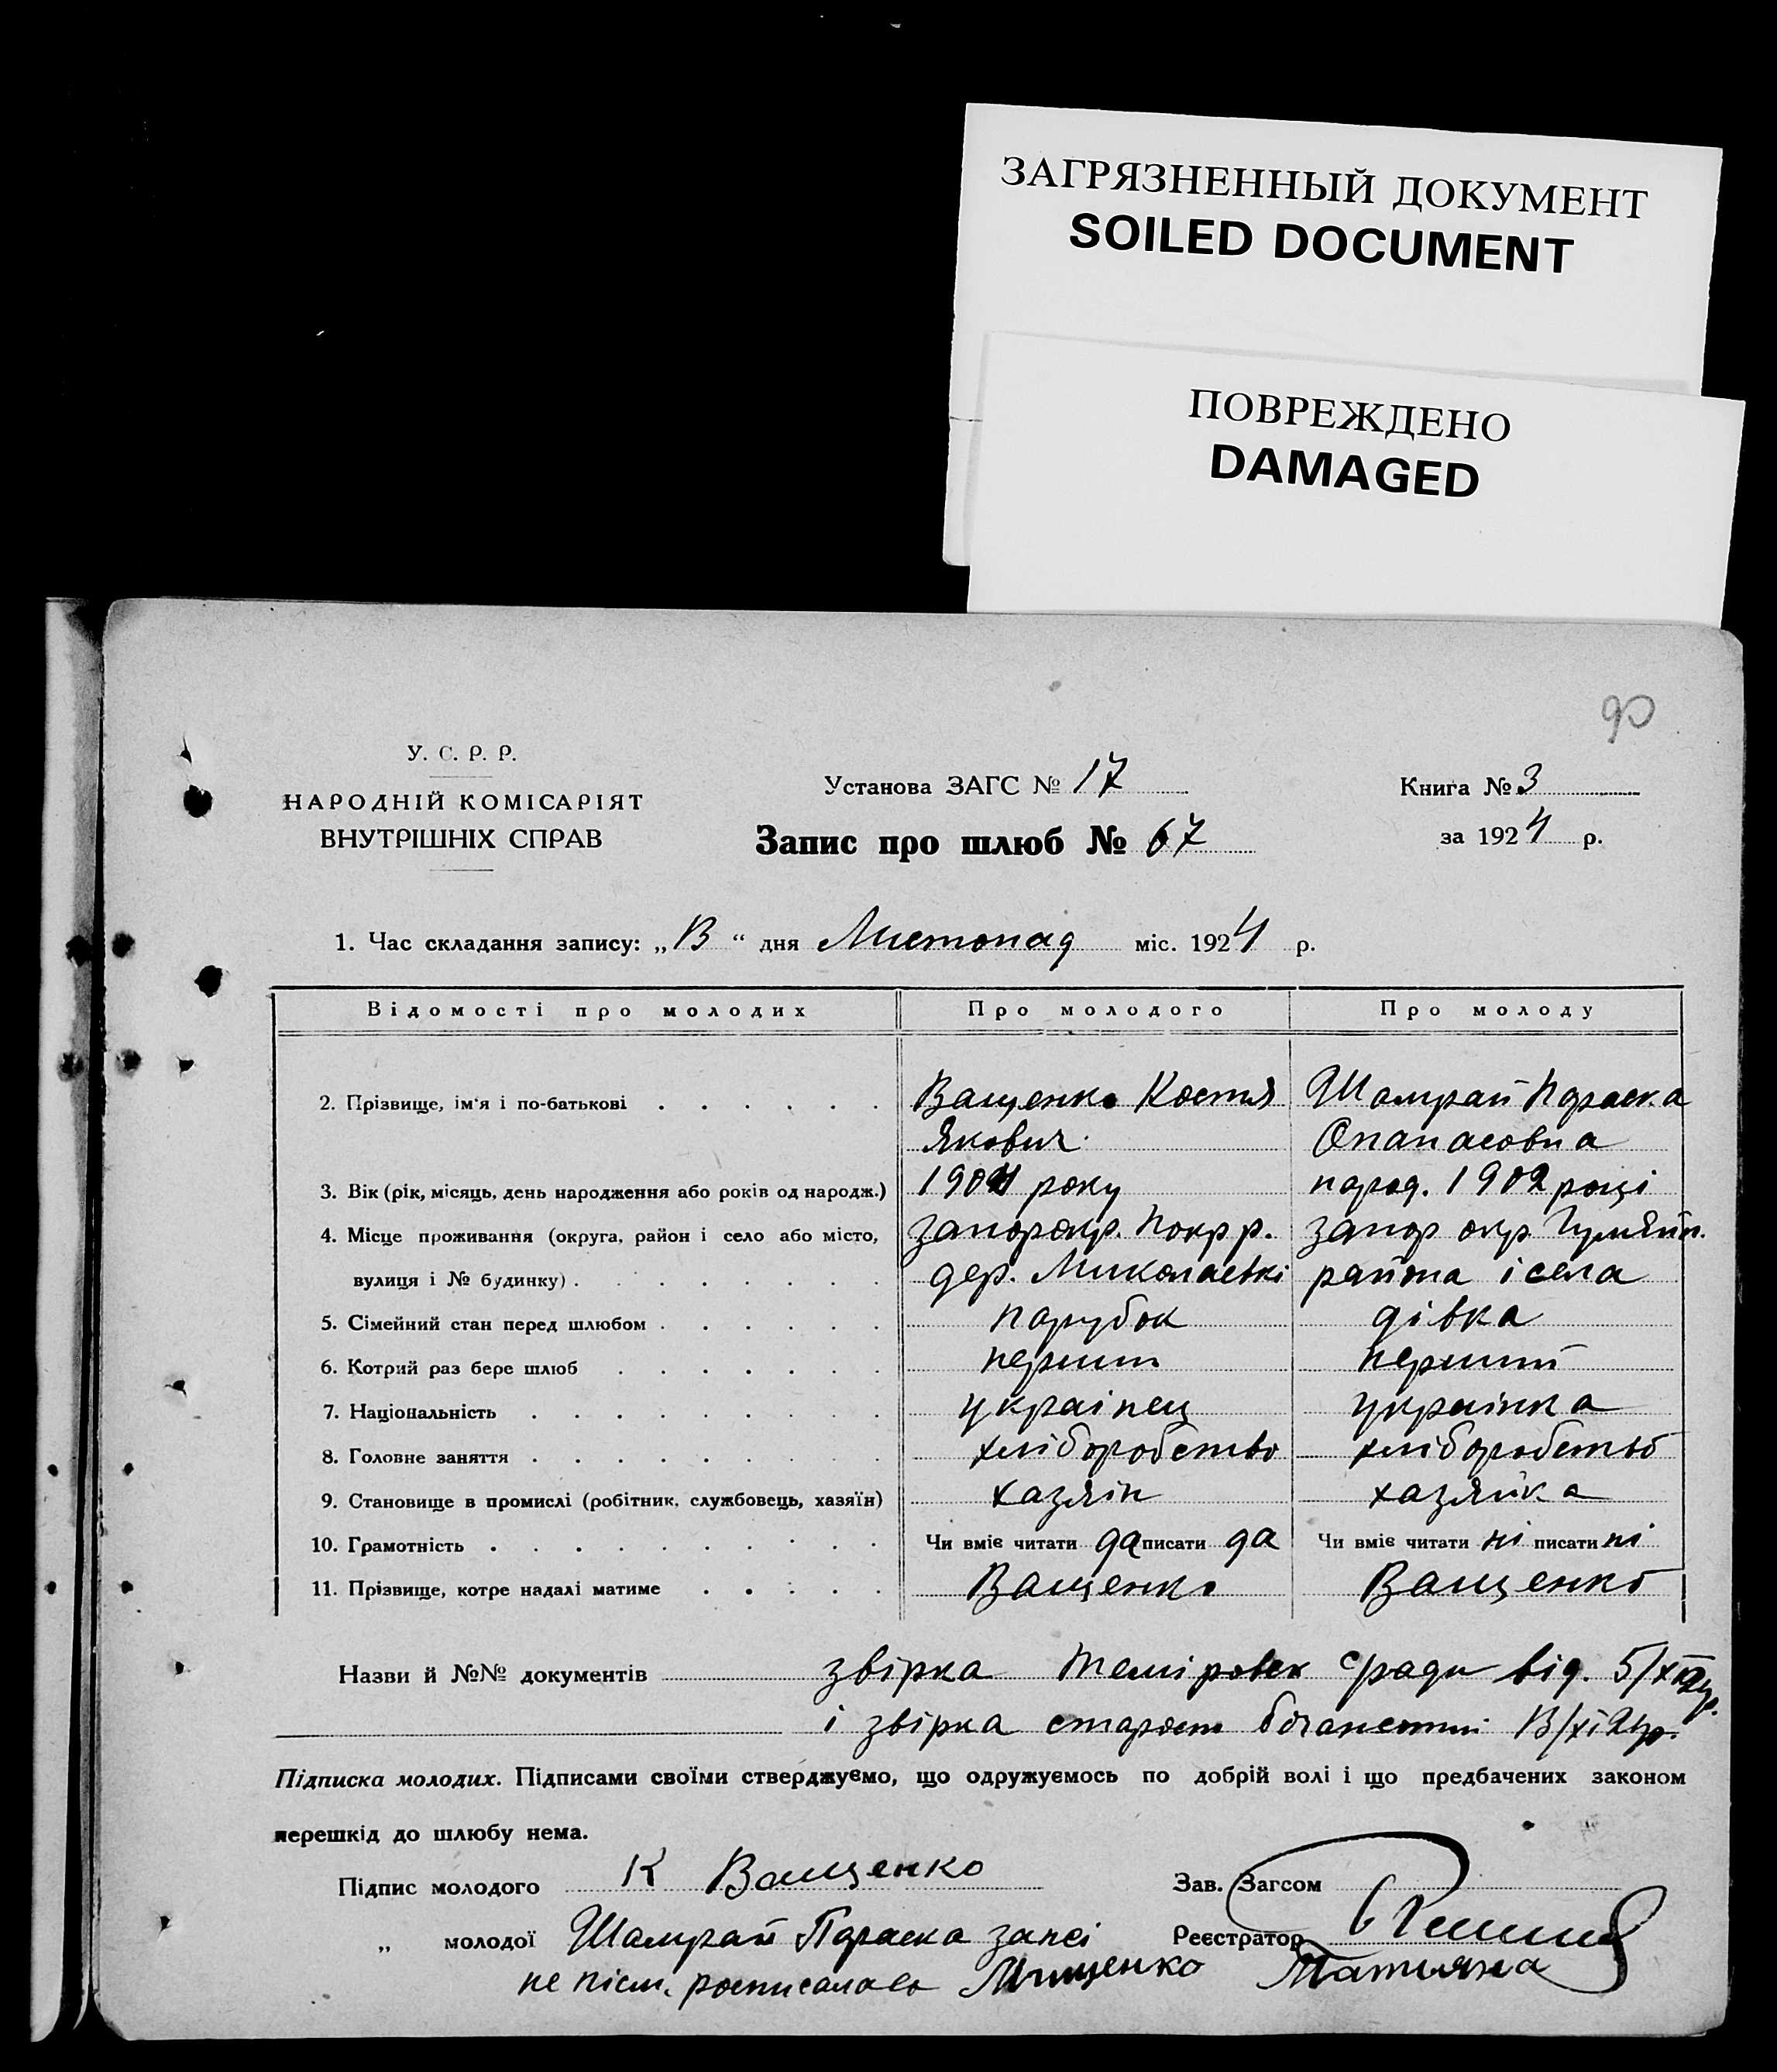 ЗАГРЯЗНЕННЫЙ ДОКУМЕНТ
SOILED DOCUMENT
ПОВРЕЖДЕНО
DAMAGED
90
У. С. Р. Р.
НАРОДНІЙ КОМІСАРІЯТ
ВНУТРІШНІХ СПРАВ
Установа ЗАГС № 17
Запис про шлюб № 67
Книга № 3
за 1924 р.
1. Час складання запису: „13“ дня Листопад міс. 1924 р.
Відомості про молодих Про молодого Про молоду
2. Прізвище, ім'я і по-батькові Ващенко Костя Шамрай Параска
Якович Опанасовна
3. Вік (рік, місяць, день народження або років од народж.) 1904 року народ. 1902 році
4. Місце проживання (округа, район і село або місто, Запорокр. Покр р. Запор окр
вулиця і № будинку) дер. Миколаєвкі района і села
5. Сімейний стан перед шлюбом парубок дівка
6. Котрий раз бере шлюб перший перший
7. Національність украінец украінка
8. Головне заняття хліборобство хліборобство
9. Становище в промислі (робітник, службовець, хазяїн) хазяін хазяйка
10. Грамотність Чи вміє читати да писати да Чи вміє читати ні писати ні
11. Прізвище, котре надалі матиме Ващенко Ващенко
Назви й №№ документів звірка Теміровск с ради від. 5/XI 24р.
і звірка 13/XI 24р.
Підписка молодих. Підписами своїми стверджуємо, що одружуємось по добрій волі і що предбачених законом
перешкід до шлюбу нема.
Підпис молодого К Ващенко Зав. Загсом
„ молодої Шамрай Параска Реєстратор
не písм. росписалась Мищенко Татьяна